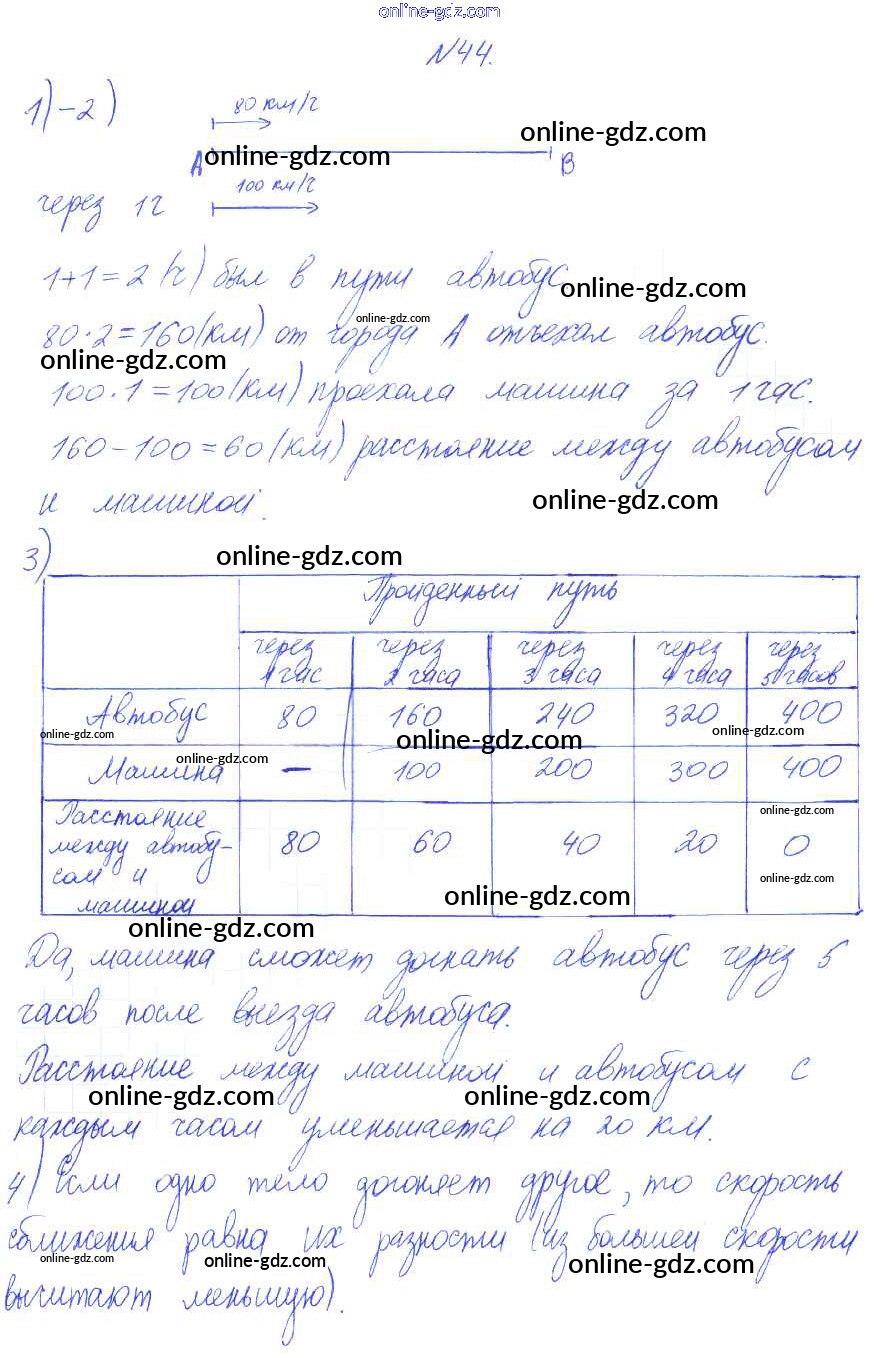 online-gdz.com
N44.
1)-2)
80 км/ч
online-gdz.com
A online-gdz.com B
через 1ч 100 км/ч
1+1=2 (ч) был в пути автобус.
online-gdz.com
80·2=160(км) от города А отъехал автобус.
online-gdz.com
online-gdz.com
100·1=100(км) проехала машина за 1 час.
160-100=60(км) расстояние между автобусом
и машиной.
online-gdz.com
3)
online-gdz.com
Пройденный путь
через 1 час через 2 часа через 3 часа через 4 часа через 5 часов
Автобус 80 160 240 320 400
online-gdz.com online-gdz.com online-gdz.com
Машина — 100 200 300 400
online-gdz.com
Расстояние
online-gdz.com
между автобу-
сом и
машиной 80 60 40 20 0
online-gdz.com
online-gdz.com
online-gdz.com
Да, машина сможет догнать автобус через 5
часов после выезда автобуса.
Расстояние между машиной и автобусом с
online-gdz.com online-gdz.com
каждым часом уменьшается на 20 км.
4) Если одно тело догоняет другое, то скорость
сближения равна их разности (из большей скорости
online-gdz.com online-gdz.com online-gdz.com
вычитают меньшую).